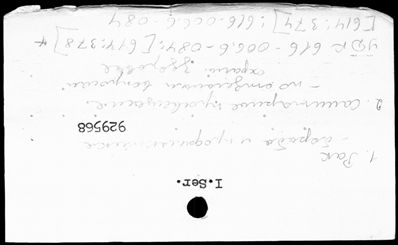 1. Рак
- борьба и профилактика
929568
2. Санитарное просвещение
- по отдельным вопросам
охраны здоровья
УДК 616-006.6-084:[614:378]*
[614:374]:616-006.6-084
I.Ser.